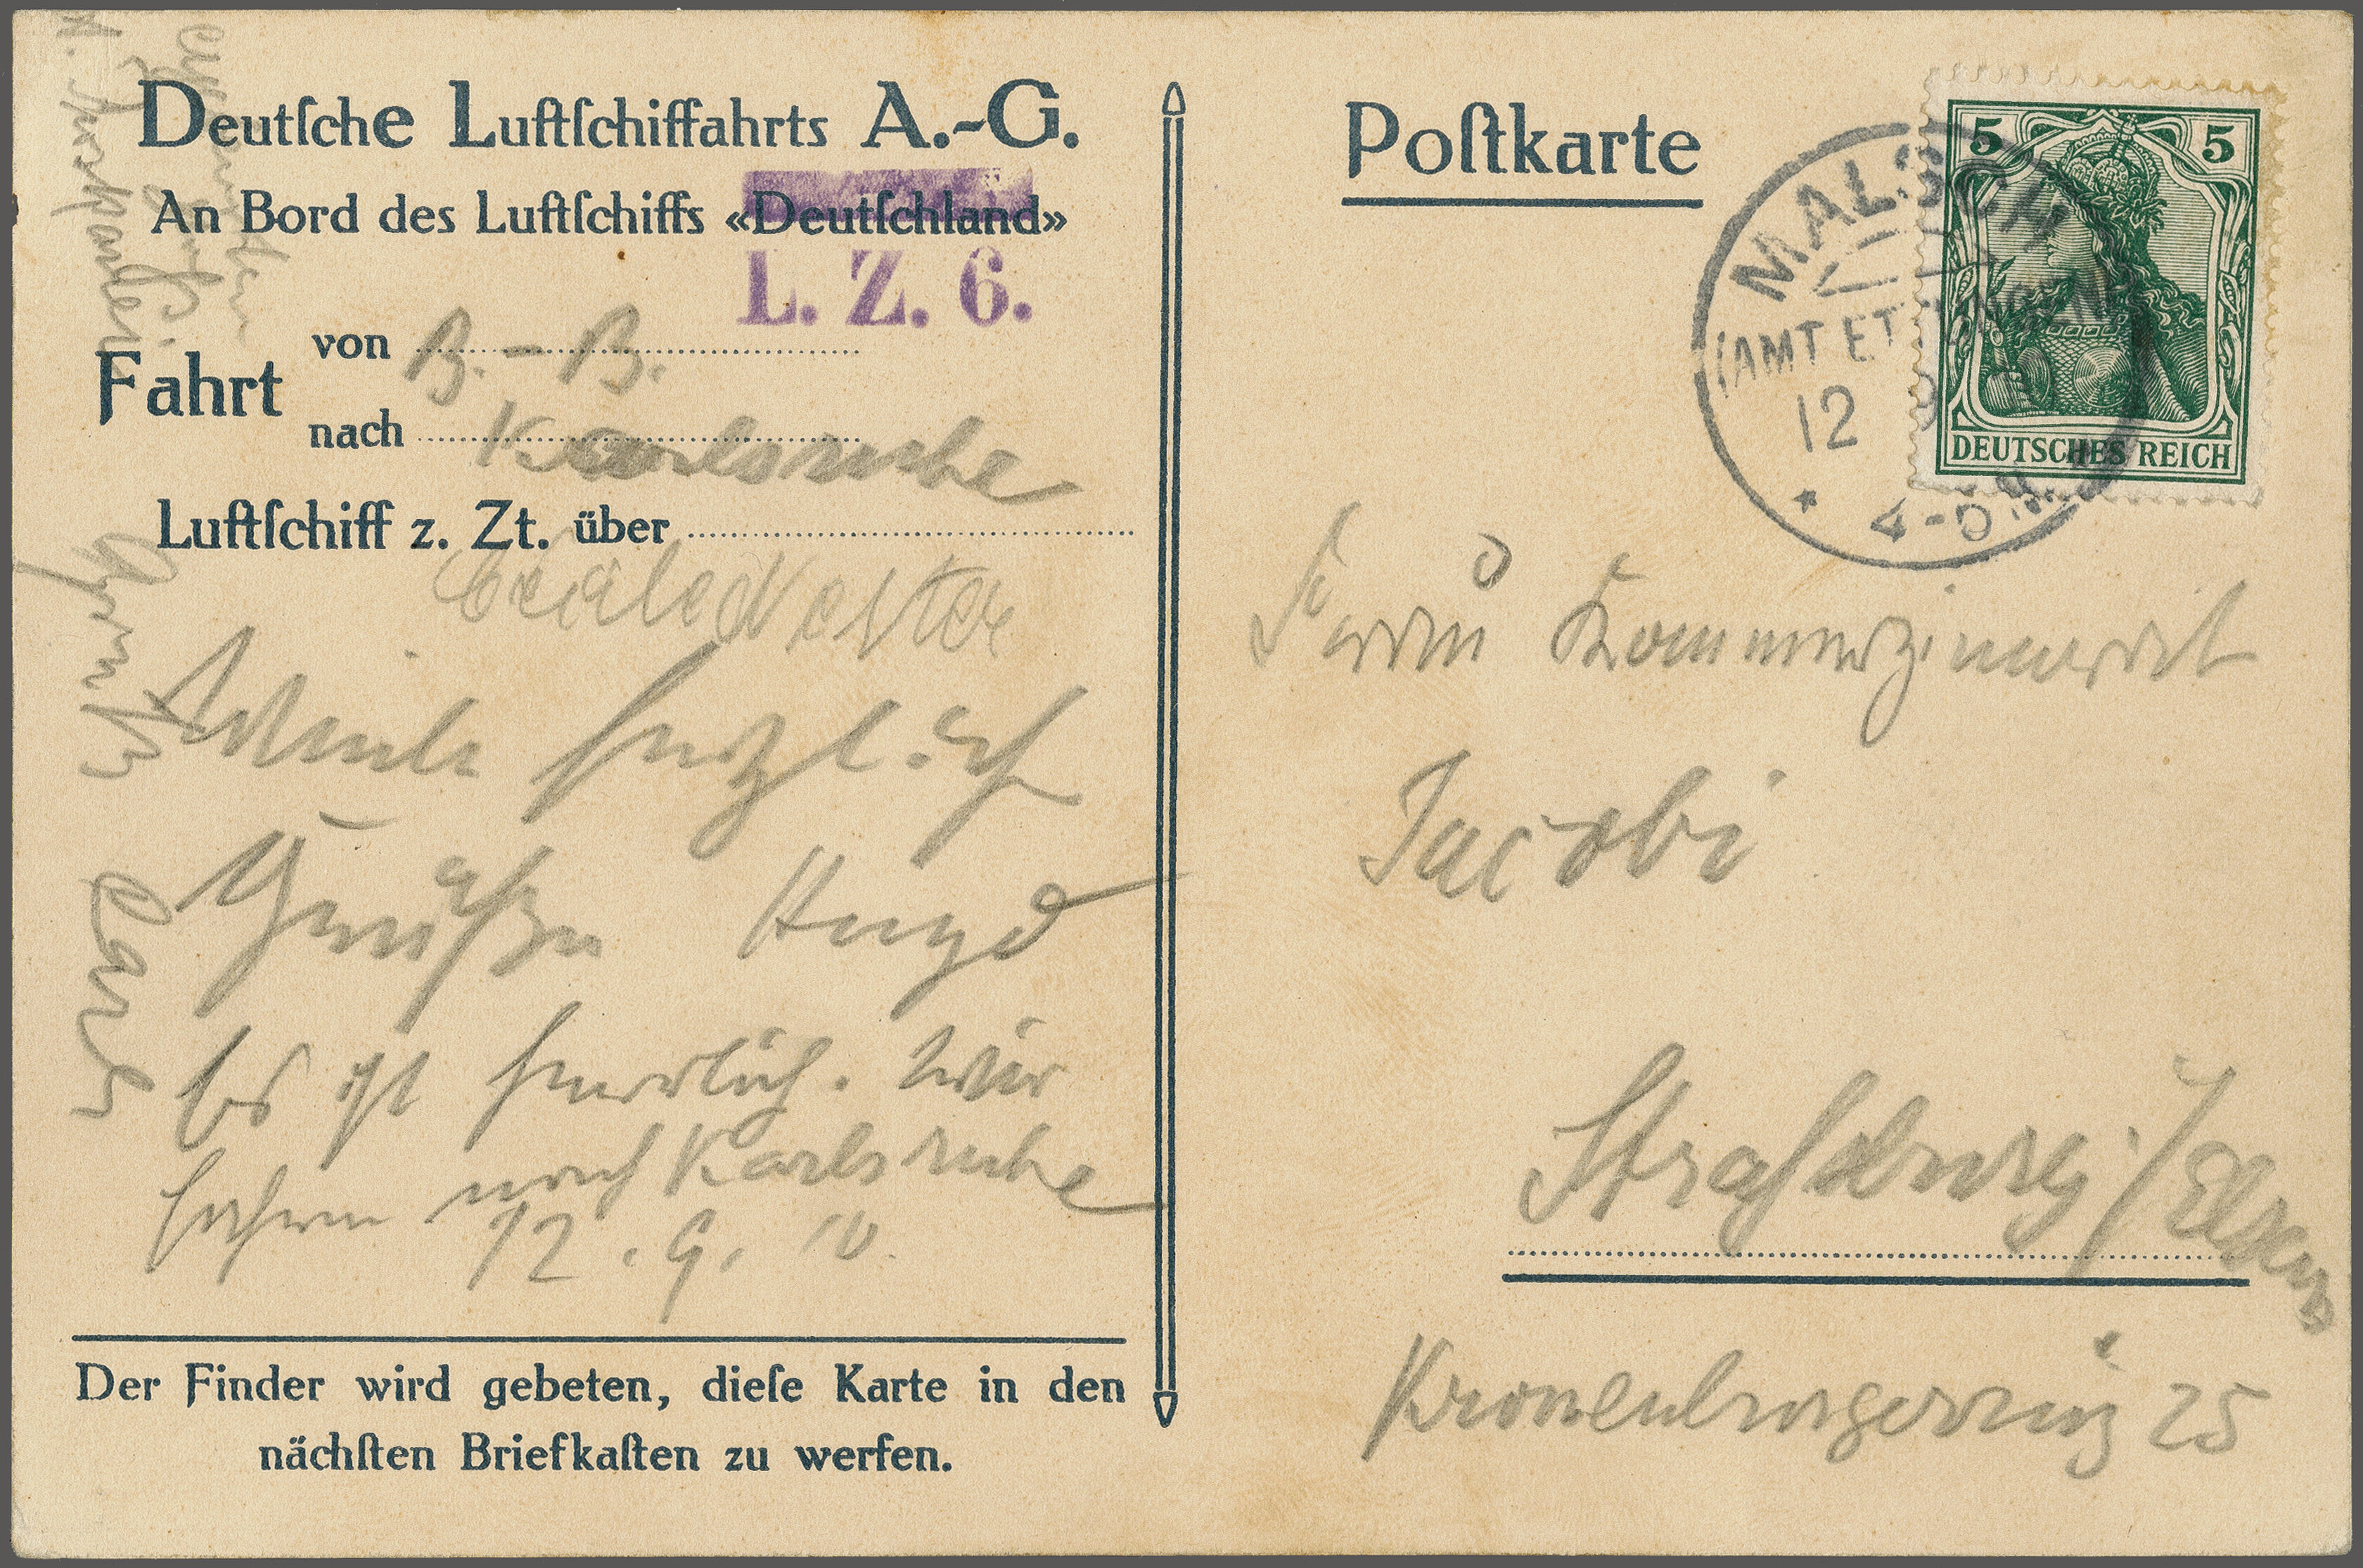 Deutſche Luftſchiffahrts A.-G.
An Bord des Luftſchiffs «Deutſchland»
L. Z. 6.
Fahrt
von B.-B.
nach Karlsruhe
Luftſchiff z. Zt. über
herzlich
Grüße Hugo
Es ist herrlich. Wir
fahren nach Karlsruhe
12. 9. 10.
Der Finder wird gebeten, dieſe Karte in den
nächſten Briefkaſten zu werfen.
Poſtkarte
5 5
DEUTSCHES REICH
MALSCH
(AMT ETTLINGEN)
12
4-5
Jacobi
Straßburg i/Elsass
Kronenburgerring 25